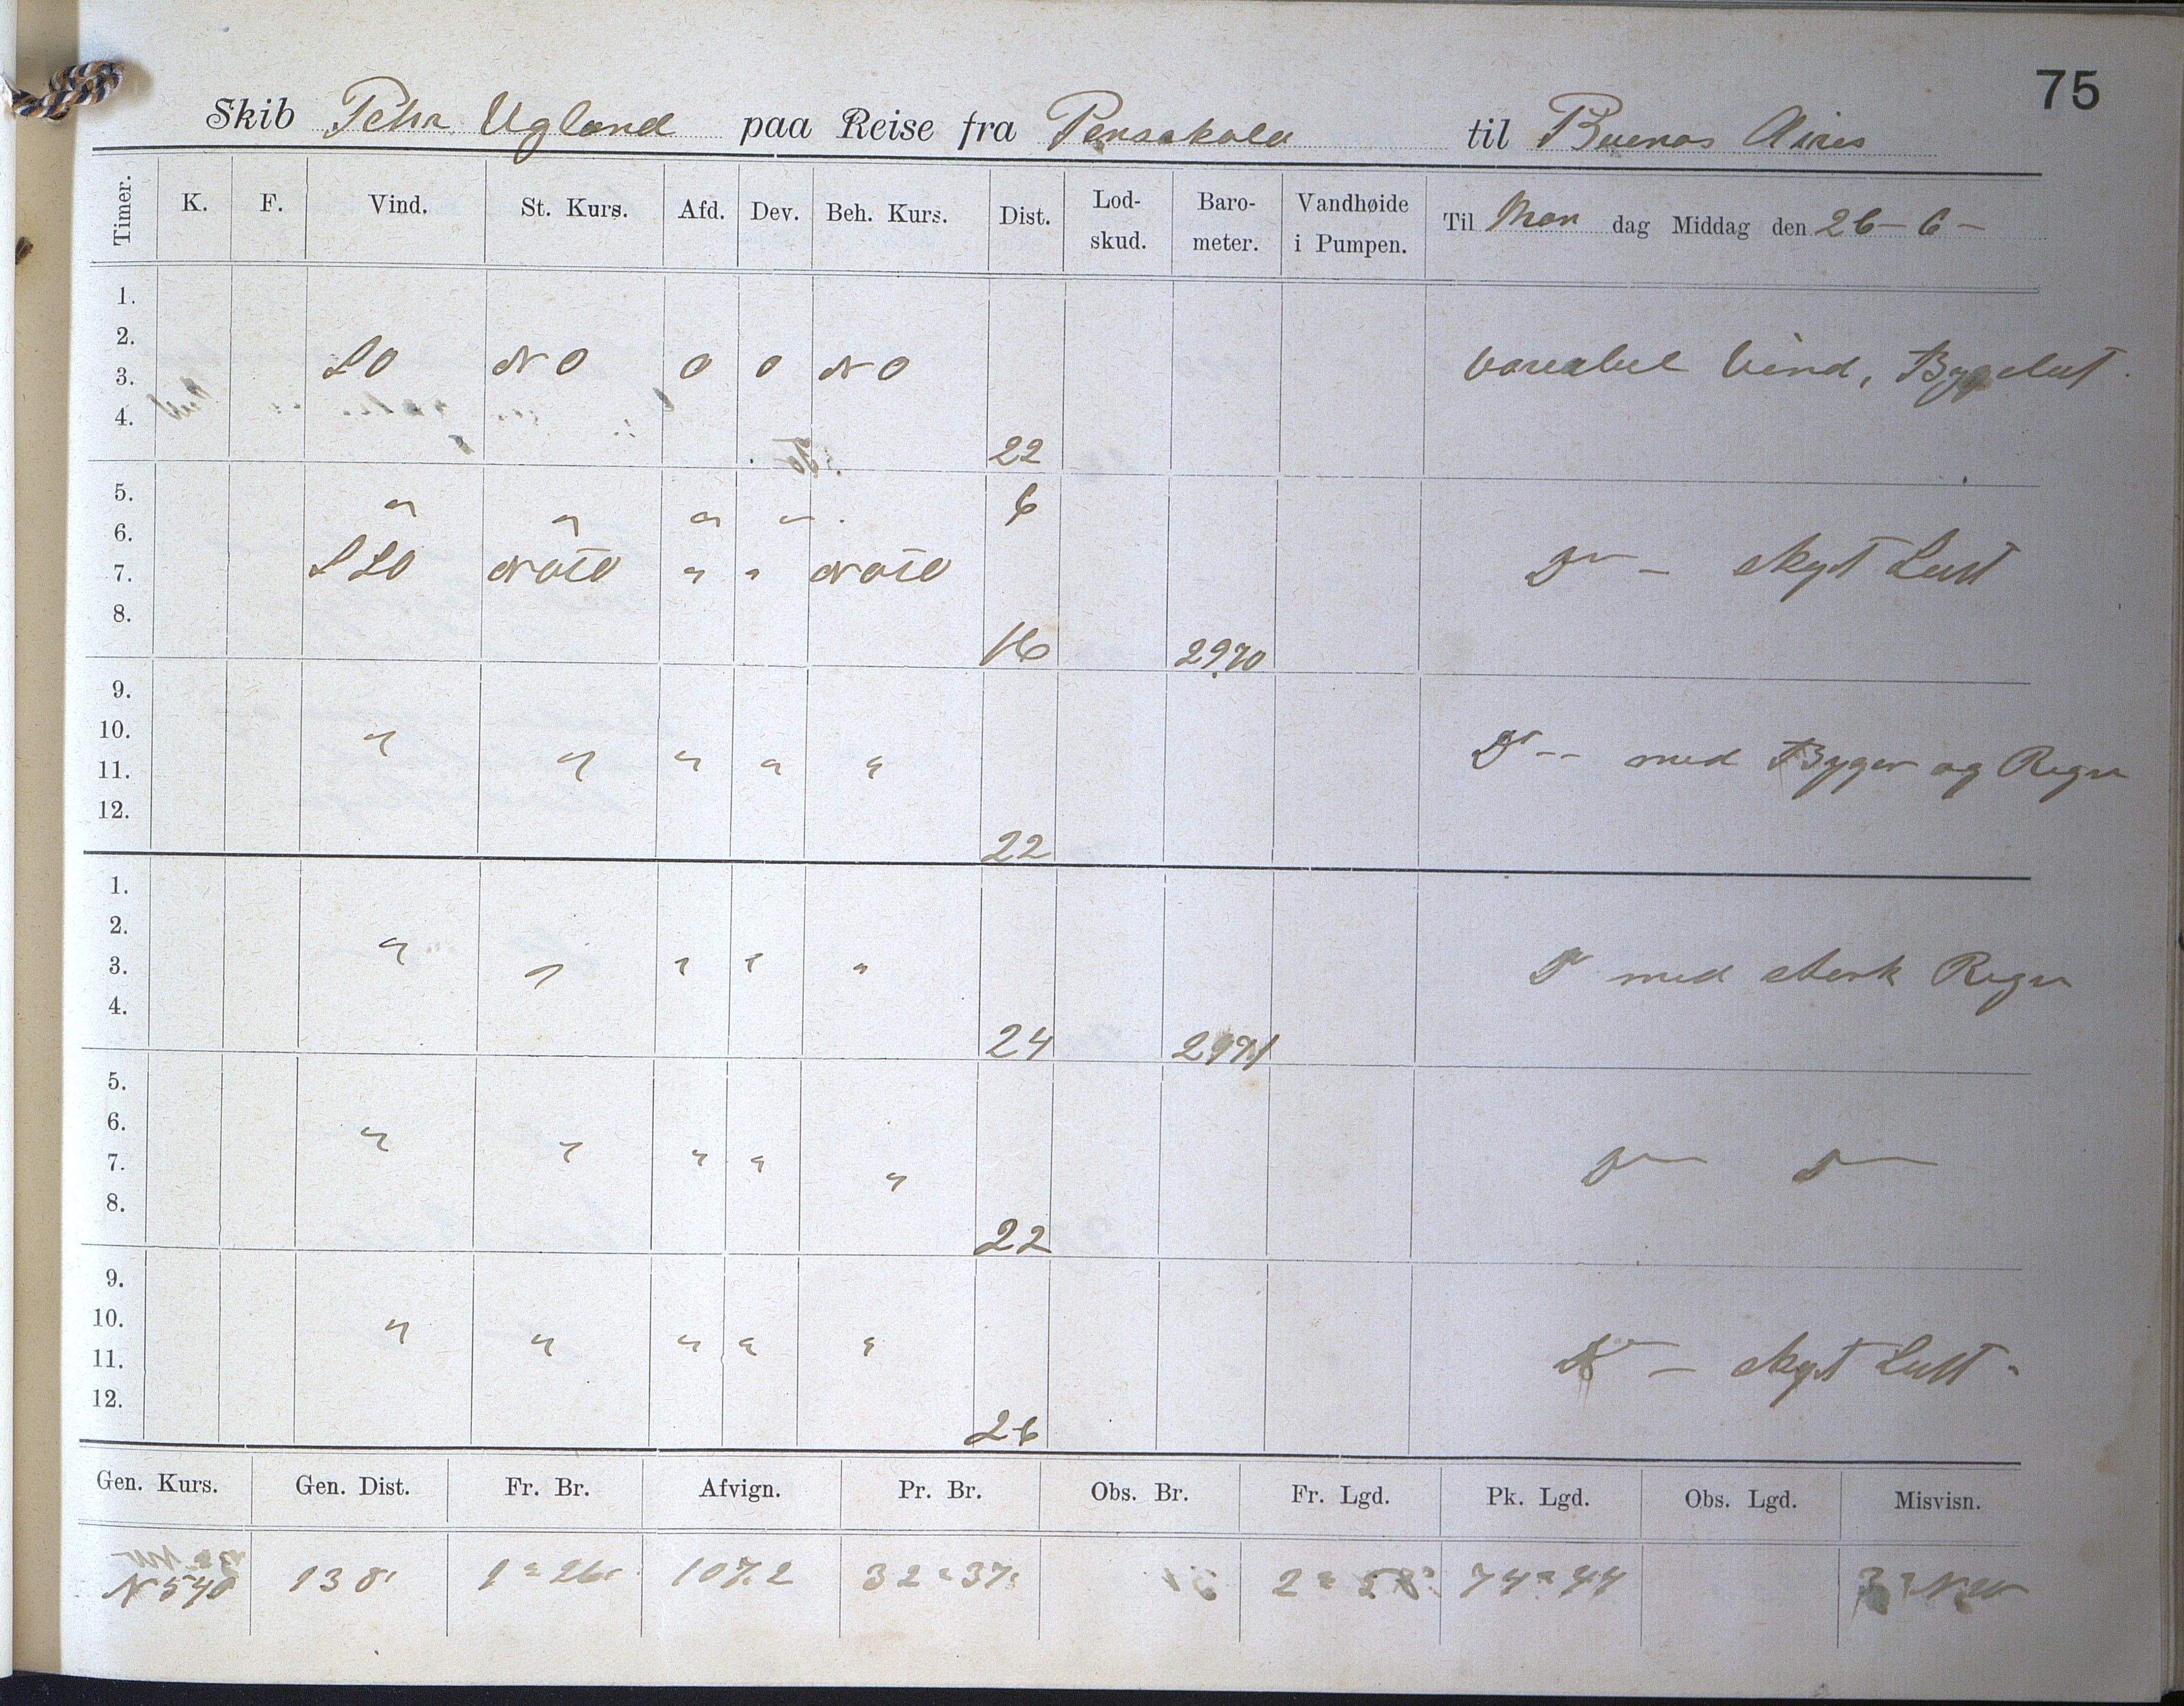 75
Skib Peter Ugland paa Reise fra Pensakola til Buenos Aires
Timer. K. F. Vind. St. Kurs. Afd. Dev. Beh. Kurs. Dist. Lod-skud. Baro-meter. Vandhøide i Pumpen. Til Man dag Middag den 26-6-
1.
2.
3. SO NO 0 0 NO Variabel Vind, Bygeluft.
4. 22
5. " " " " 6
6.
7. SSO NOtO " " NOtO Do - Skyt Luft
8. 16 2970
9.
10.
11. " " " " " Do -- med Byger og Regn
12. 22
1.
2.
3. " " " " " Do med sterk Regn
4. 24 2971
5.
6.
7. " " " " " Do Do
8. 22
9.
10.
11. " " " " " Do - Skyt Luft -
12. 26
Gen. Kurs. Gen. Dist. Fr. Br. Afvign. Pr. Br. Obs. Br. Fr. Lgd. Pk. Lgd. Obs. Lgd. Misvisn.
N 540 138' 1° 26' 107.2 32° 37' 2° 74° 44 3° NW